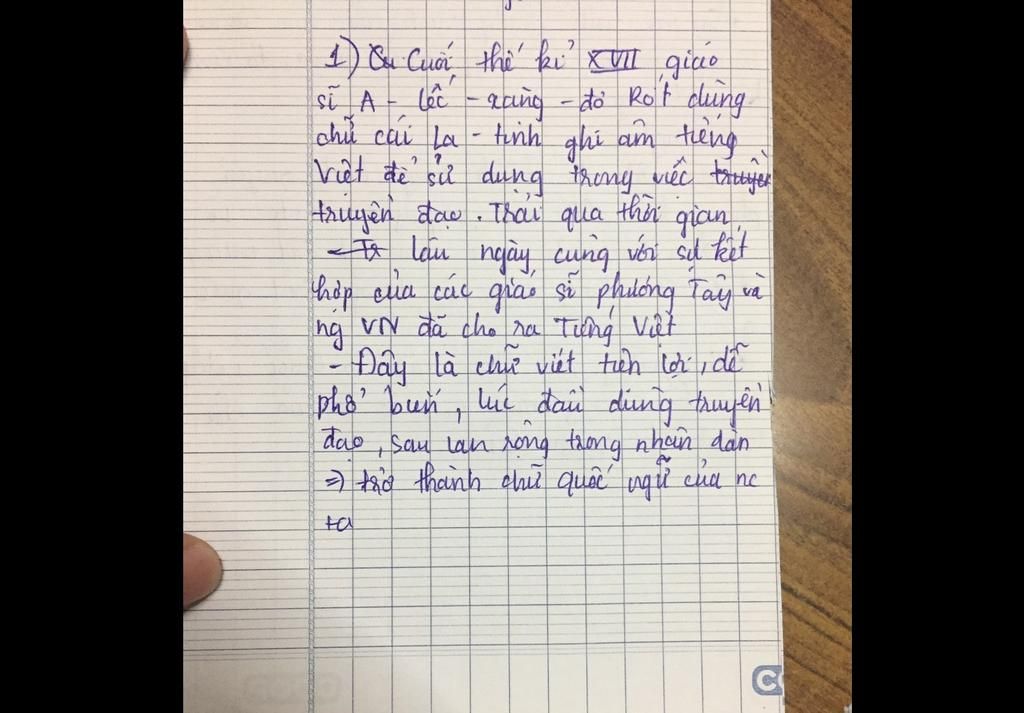 1) Cuối thế kỉ XVII giáo
sĩ A - lếc - xăng - đơ Rốt dùng
chữ cái La - tinh ghi âm tiếng
Việt để sử dụng trong việc truyền
truyền đạo. Trải qua thời gian
lâu ngày cùng với sự kết
hợp của các giáo sĩ phương Tây và
ng VN đã cho ra Tiếng Việt
- Đây là chữ viết tiện lợi, dễ
phổ biến, lúc đầu dùng truyền
đạo, sau lan rộng trong nhân dân
=> trở thành chữ quốc ngữ của nc
ta